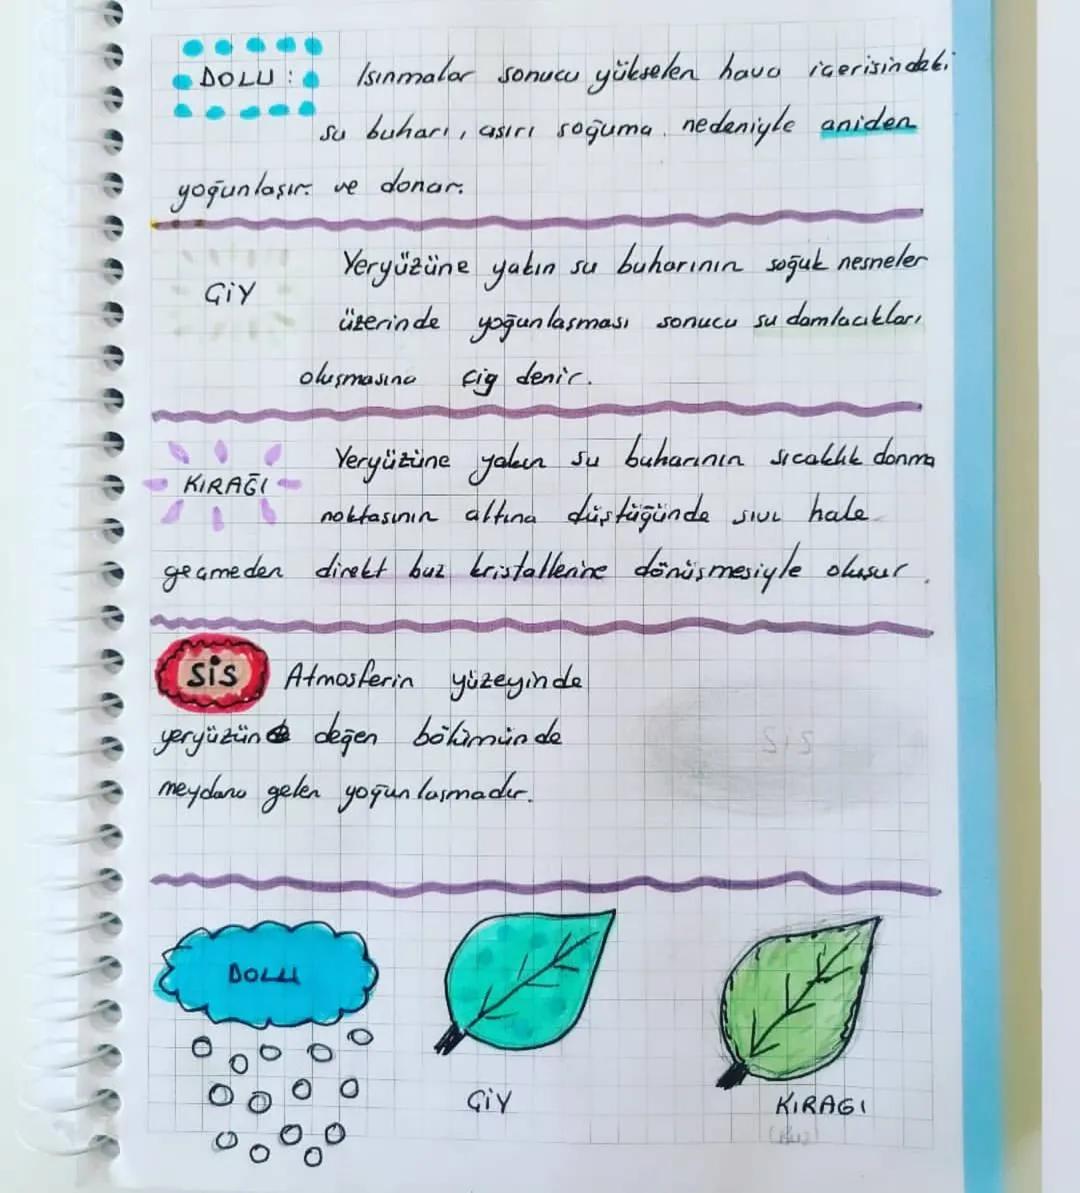 DOLU : Isınmalar sonucu yükselen hava içerisindeki
su buharı, aşırı soğuma nedeniyle aniden
yoğunlaşır ve donar.
ÇİY Yeryüzüne yakın su buharının soğuk nesneler
üzerinde yoğunlaşması sonucu su damlacıkları
oluşmasına çiğ denir.
KIRAĞI Yeryüzüne yakın su buharının sıcaklık donma
noktasının altına düştüğünde sıvı hale
geçmeden direkt buz kristallerine dönüşmesiyle oluşur.
SİS Atmosferin yüzeyinde
yeryüzüne değen bölümünde
meydana gelen yoğunlaşmadır.
SİS
DOLU
ÇİY
KIRAĞI
(Buz)